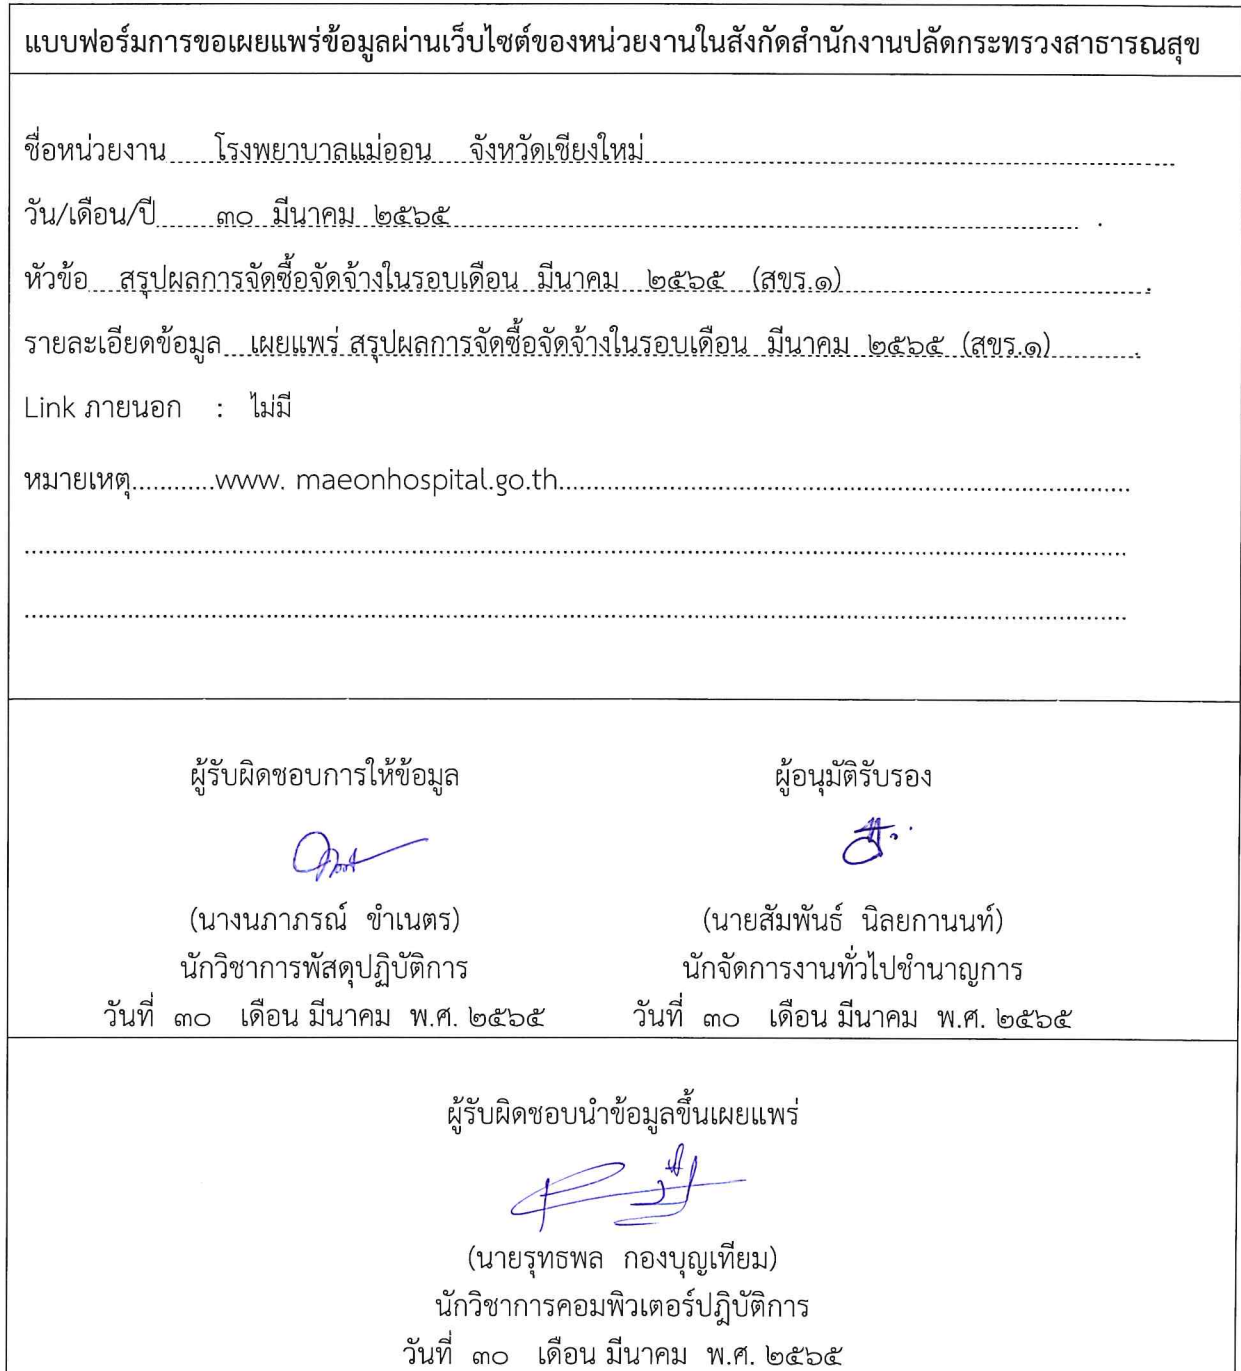 แบบฟอร์มการขอเผยแพร่ข้อมูลผ่านเว็บไซต์ของหน่วยงานในสังกัดสำนักงานปลัดกระทรวงสาธารณสุข
ชื่อหน่วยงาน โรงพยาบาลแม่ออน จังหวัดเชียงใหม่
วัน/เดือน/ปี ๓๐ มีนาคม ๒๕๖๕ .
หัวข้อ สรุปผลการจัดซื้อจัดจ้างในรอบเดือน มีนาคม ๒๕๖๕ (สขร.๑) .
รายละเอียดข้อมูล เผยแพร่ สรุปผลการจัดซื้อจัดจ้างในรอบเดือน มีนาคม ๒๕๖๕ (สขร.๑) .
Link ภายนอก : ไม่มี
หมายเหตุ............www. maeonhospital.go.th....................................................................................
................................................................................................................................................................
................................................................................................................................................................
ผู้รับผิดชอบการให้ข้อมูล ผู้อนุมัติรับรอง
(นางนภาภรณ์ ขำเนตร) (นายสัมพันธ์ นิลยกานนท์)
นักวิชาการพัสดุปฏิบัติการ นักจัดการงานทั่วไปชำนาญการ
วันที่ ๓๐ เดือน มีนาคม พ.ศ. ๒๕๖๕ วันที่ ๓๐ เดือน มีนาคม พ.ศ. ๒๕๖๕
ผู้รับผิดชอบนำข้อมูลขึ้นเผยแพร่
(นายรุทธพล กองบุญเทียม)
นักวิชาการคอมพิวเตอร์ปฏิบัติการ
วันที่ ๓๐ เดือน มีนาคม พ.ศ. ๒๕๖๕